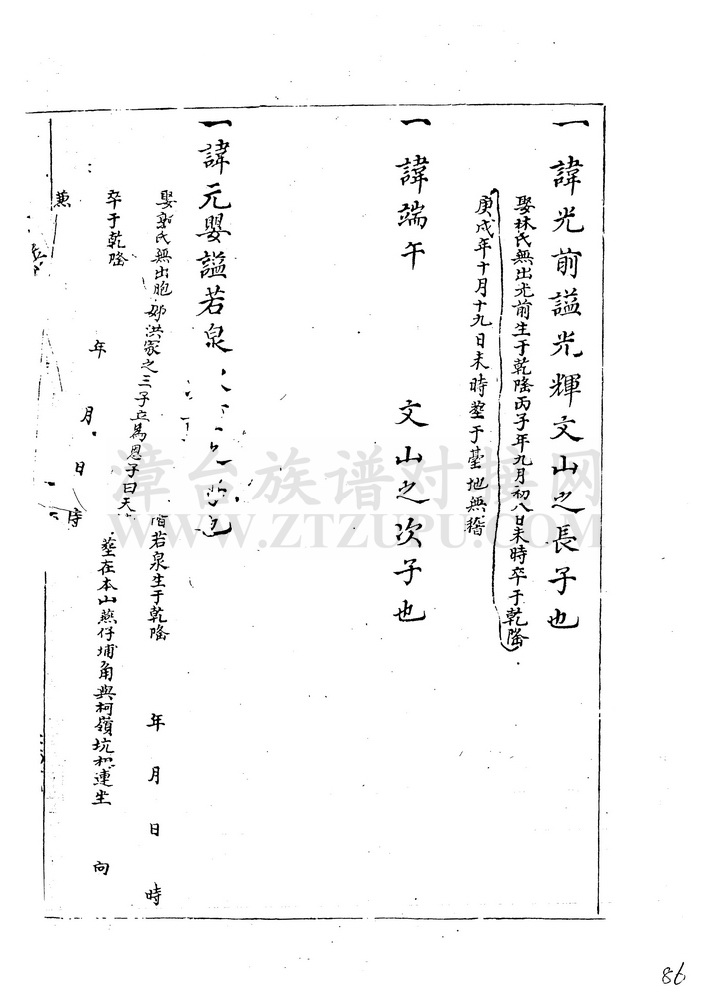 一諱光前謚光輝文山之長子也
娶林氏無出光前生于乾隆丙子年九月初八日未時卒于乾隆
庚戌年十月十九日未時塟于䑓地無稽
一諱端午 文山之次子也
一諱元嬰謚若泉
娶郭氏無出胞 洪家之三子立為恩子曰天 若泉生于乾隆 年 月 日 時
卒于乾隆 年 月 日 時 塟在本山燕仔埔角與柯嶺坑 連坐 向
兼
漳台族谱对接网
WWW.ZTZUPU.COM
86